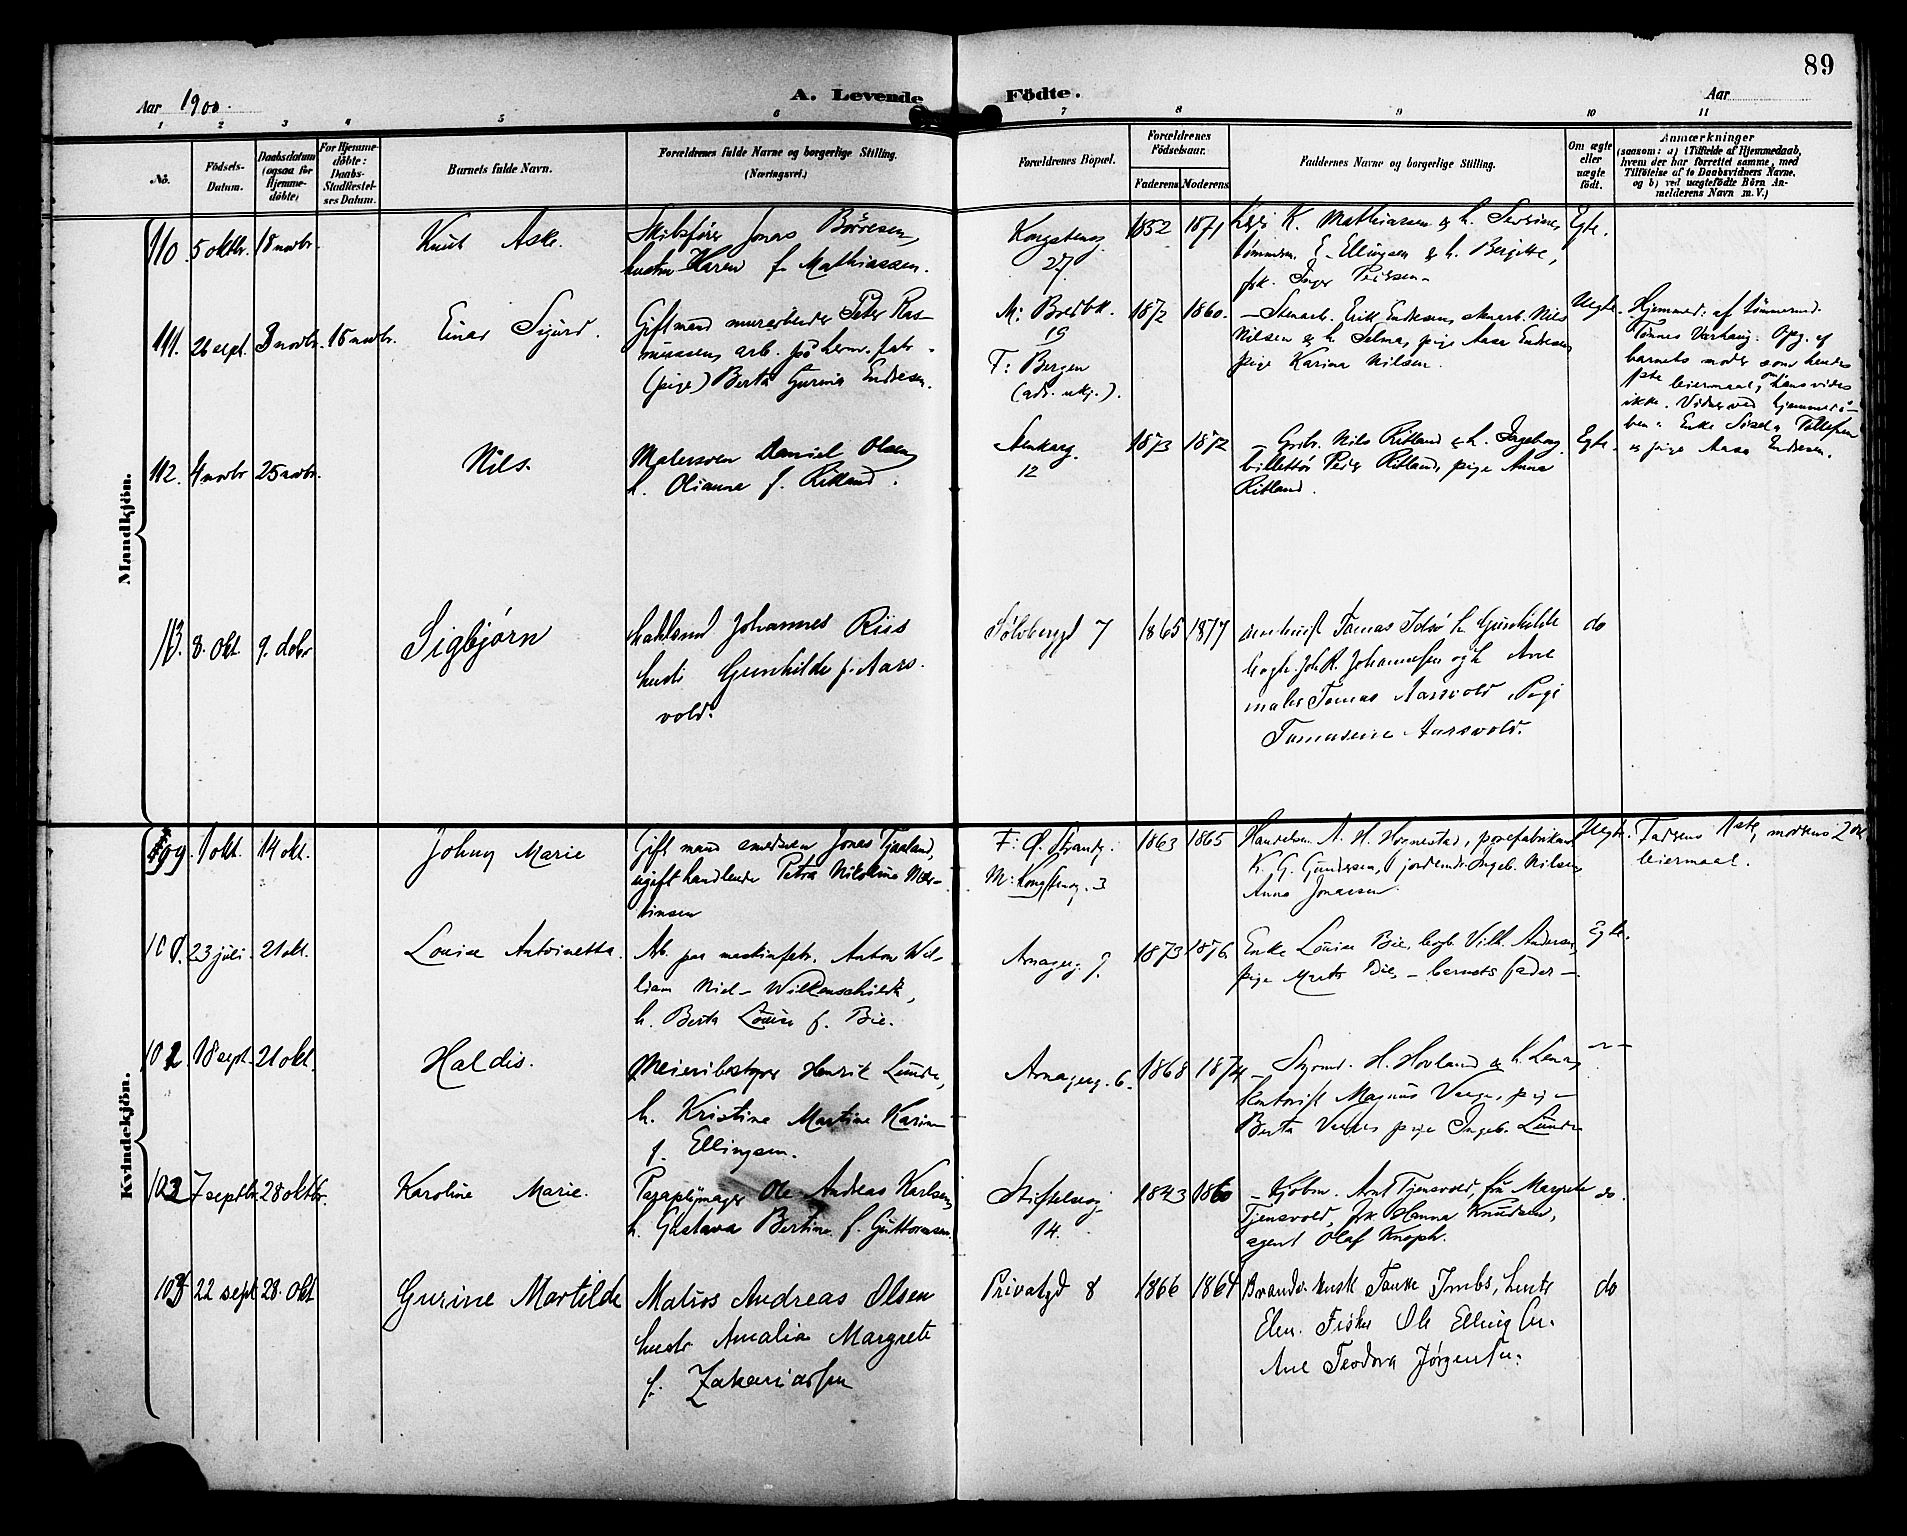 89
Aar 1900.
A. Levende Födte.
Aar
1 2 3 4 5 6 7 8 9 10 11
Nō.
Födsels-
Datum.
Daabsdatum
(ogsaa for
Hjemme-
döbte)
For Hjemme-
döbte:
Daabs-
Stadfæstel-
ses Datum.
Barnets fulde Navn.
Forældrenes fulde Navne og borgerlige Stilling.
(Næringsvei.)
Forældrenes Bopæl.
Forældrenes
Födselsaar.
Faderens
Moderens
Faddernes Navne og borgerlige Stilling.
Om ægte
eller
uægte
födt.
Anmærkninger
(saasom: a) i Tilfælde af Hjemmedaab,
hvem der har forrettet samme, med
Tilföielse af to Daabsvidners Navne,
og b) ved uægtefödte Börn An-
melderens Navn m. V.)
Mandkjön.
110. 5 oktbr. 18 novbr.
Knut Aske.
Skibsfører Jonas Börresen,
hustru Karen f. Mathiassen.
Kongsteng
27
1852 1871
K. Mathiassen & h. Severine,
E. Ellingsen & h. Bergitte,
frk. Inger
Egte.
111. 26 sept. 8 novbr. 15 novbr.
Einar Sigurd.
Gift mand murarbeider Peter Ras-
mussen, arb. på herm. fabr.
(pige) Berta Gurina Endresen.
M: Bredbk.
19
F: Bergen
(adr. ukj.).
1872 1860.
Stenarb. Erik Endresen, skoarb. Nils
Nilsen & h. Selma, pige Aasa Endresen,
pige Karina Nilsen.
Uegte.
Hjemmed. af tømmermd.
Tönnes Varhaug. Opg. af
barnets moder som hendes
1ste leiermaal, om hans vides
ikke. Vidner ved hjemmedå-
ben: Enke Sisela Tollefsen
og pige Aasa Endresen.
112. 4 novbr 25 novbr.
Nils.
Malersven Daniel Olsen,
h. Olianne f. Ritland.
Stenkarg.
12
1873 1872
Grbr. Nils Ritland & h. Ingeborg,
billettör Peder Ritland, pige Anna
Ritland.
Egte.
113. 8. Okt 9. debr
Sigbjørn
Johannes Riis
hustr Gunhilde f. Aars-
vold.
Sølvberggd 7
1865 1877
Tomas Idsø h. Gunhilde
bagh. Joh R. Johannesen og h Ane
maler Tomas Aarsvold Pige
Tomasine Aarsvold.
do
Kvindekjön.
99. 1 okt. 14 okt.
Johny Marie
Gift mand smedsven Jonas Tjaaland,
ugift handlende Petra Nikoline Mar-
tinsen
F: Ø. Strandg.
M: Kongsteng. 3
1863 1865
Handelsm. A. H. Hognestad, posefabrikant
K. G. Gundersen, jordemdr Ingeb. Nilsen,
Anna Jonassen.
Uegte.
Faderens 1ste, moderens 2det
leiermaal.
100. 23 juli. 21 okt.
Louise Antoinetta.
Arb. paa maskinfabr. Anton Wil-
liam Wilkenschildt,
h. Berta Louise f. Bie.
Arnagerg. 9.
1873 1876
Enke Louise Bie, bagh. Vilh. Andersen,
pige Marta Bie, - barnets fader -
Egte.
101 18 sept. 21 okt.
Haldis.
Meieribestyrer Henrik Lunde,
h. Kristine Martine Karine
f. Ellingsen.
Arnagerg. 6.
1868 1874
Styrmd. H. Hovland & h. Lena,
kontorist Magnus pige
Berta pige Ingeb. Lunde
102 7 septbr. 28 oktbr.
Karoline Marie.
Paraplymager Ole Andreas Karlsen,
h. Gustava Bertine f. Guttormsen.
Stiftelseg.
14.
1843 1860
Kjøbm. Arnt Tjensvold, fru Margrete
Tjensvold, frk. Hanna Knudsen,
agent Olaf Knoph.
do.
103 22 sept 28. Okt
Gurine Martilde
Matros Andreas Olsen
hustr Amalia Margrete
f. Zakariassen
Privatgd 8
1866 1864
Brandv. kusk Tanke Imbs, hustr
Elen. Fisker Ole Ellingsen.
Ane Teodora Jørgensen.
do